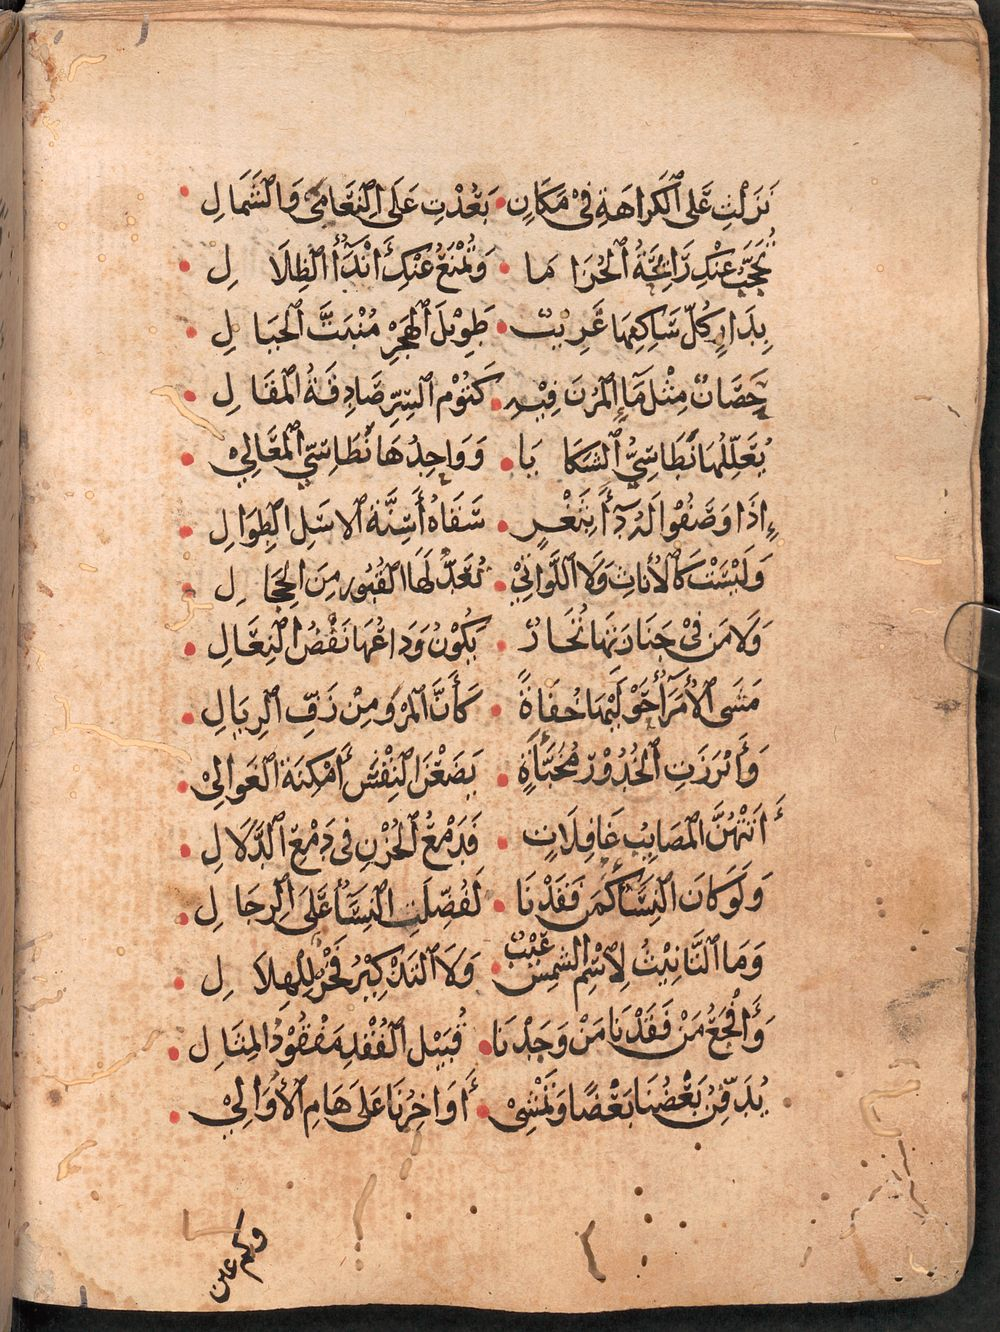 نَزَلْتِ عَلَى ٱلْكَرَاهَةِ فِيْ مَكَانٍ • بَعُدْتِ عَلَى ٱلنُّعَامَى وَٱلشَّمَالِ •
تُحَجَّبُ عَنْكِ رَائِحَةُ ٱلْخُزَامَا • وَتُمْنَعُ عَنْكِ أَنْدَأُ ٱلظِّلَالِ •
بِدَارٍ كُلُّ سَاكِنِهَا غَرِيْبٌ • طَوِيْلُ ٱلْهَجْرِ مُنْبَتُّ ٱلْحِبَالِ •
حَصَانٌ مِثْلُ مَآءِ ٱلْمُزْنِ فِيْهِ • كَتُوْمُ ٱلسِّرِّ صَادِقَةُ ٱلْمَقَالِ •
يُعَلِّلُهَا نُطَاسِيُّ ٱلشَّكَايَا • وَوَاحِدُهَا نُطَاسِيُّ ٱلْمَعَالِيْ •
إِذَا وَصَفُوْا لَهُ دَآءً بِثَغْرٍ • سَقَاهُ أَسِنَّةَ ٱلْاَسَلِ ٱلطِّوَالِ •
وَلَيْسَتْ كَٱلْأُنَاثِ وَلَا ٱللَّوَاتِيْ • تُعَدُّ لَهَا ٱلْقُبُوْرُ مِنَ ٱلْحِجَالِ •
وَلَا مَنْ فِيْ جَنَازَتِهَا تُجَارٌ • يَكُوْنُ وَدَاعُهَا نَفْضُ ٱلنِّعَالِ •
مَشَى ٱلْأُمَرَآءُ حَوْلَيْهَا حُفَاةً • كَأَنَّ ٱلْمَرْوَ مِنْ زَفِّ ٱلرِّيَالِ •
وَأَبْرَزَتِ ٱلْخُدُوْرُ مُخَبَّآةٍ • يَضَعْنَ ٱلنِّقْسَ أَمْكِنَةَ ٱلْغَوَالِيْ •
أَتَتْهُنَّ ٱلْمَصَايِبُ غَافِلَاتٍ • فَدَمْعُ ٱلْحُزْنِ فِيْ دَمْعِ ٱلدَّلَالِ •
وَلَوْ كَانَ ٱلنِّسَآءُ كَمَنْ فَقَدْنَا • لَفُضِّلَتِ ٱلنِّسَآءُ عَلَى ٱلرِّجَالِ •
وَمَا ٱلتَّانِيْثُ لِاسْمِ ٱلشَّمْسِ عَيْبٌ • وَلَا ٱلتَّذْكِيْرُ فَخْرٌ لِلْهِلَالِ •
وَأَفْجَعُ مَنْ فَقَدْنَا مَنْ وَجَدْنَا • قُبَيْلَ ٱلْفَقْدِ مَفْقُوْدَ ٱلْمِثَالِ •
يُدَفِّنُ بَعْضُنَا بَعْضًا وَتَمْشِيْ • أَوَاخِرُنَا عَلَى هَامِ ٱلْأَوَالِيْ •
وكم عين